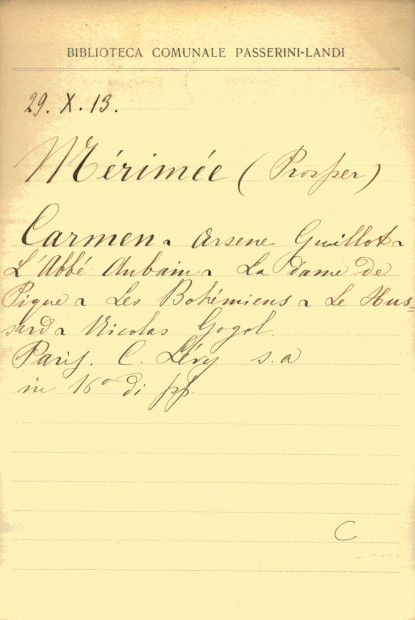 BIBLIOTECA COMUNALE PASSERINI-LANDI
29. X. 13.
Mérimée (Prosper)
Carmen - Arsene Guillot -
L'Abbé Aubain - La Dame de
Pique - Les Bohémiens - Le Hus-
sard - Nicolas Gogol
Paris. C. Lévy s. a
in 16° di pp
C